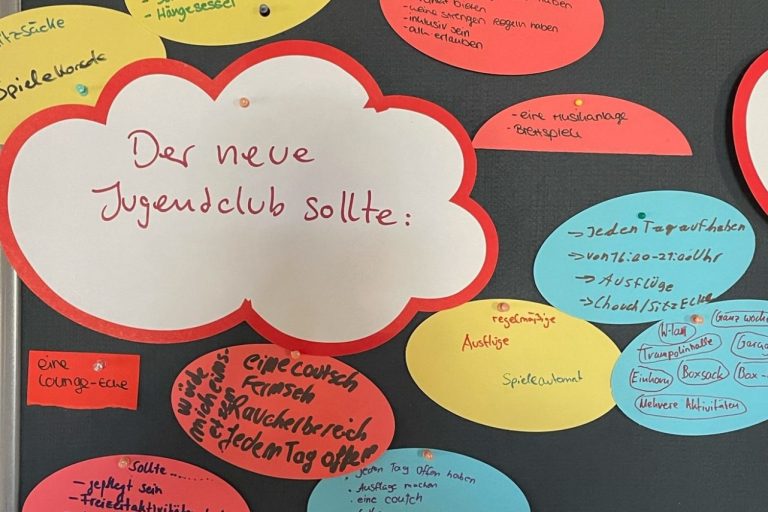 Hängesessel
Spielekonsole
haben
- keine strengen Regeln haben
- inklusiv sein
- alle erlauben
- eine Musikanlage
- Brettspiele
Der neue
Jugendclub sollte:
→ Jeden Tag aufhaben
→ von 16:00-21:00 Uhr
→ Ausflüge
→ Chouch/Sitz Ecke
regelmäßige
Ausflüge
Spieleautomat
Ganz woche
W-lan
Trampolinhalle
Einhorn
Boxsack
Box-
Mehrere Aktivitäten
eine
Lounge-Ecke
eine coutsch
Fernseh
Raucherbereich
Jedem Tag offen
würde
mich
sollte
- gepflegt sein
- Freizeitaktivitäten
· jeden Tag offen haben
· Ausflüge machen
· eine coutch